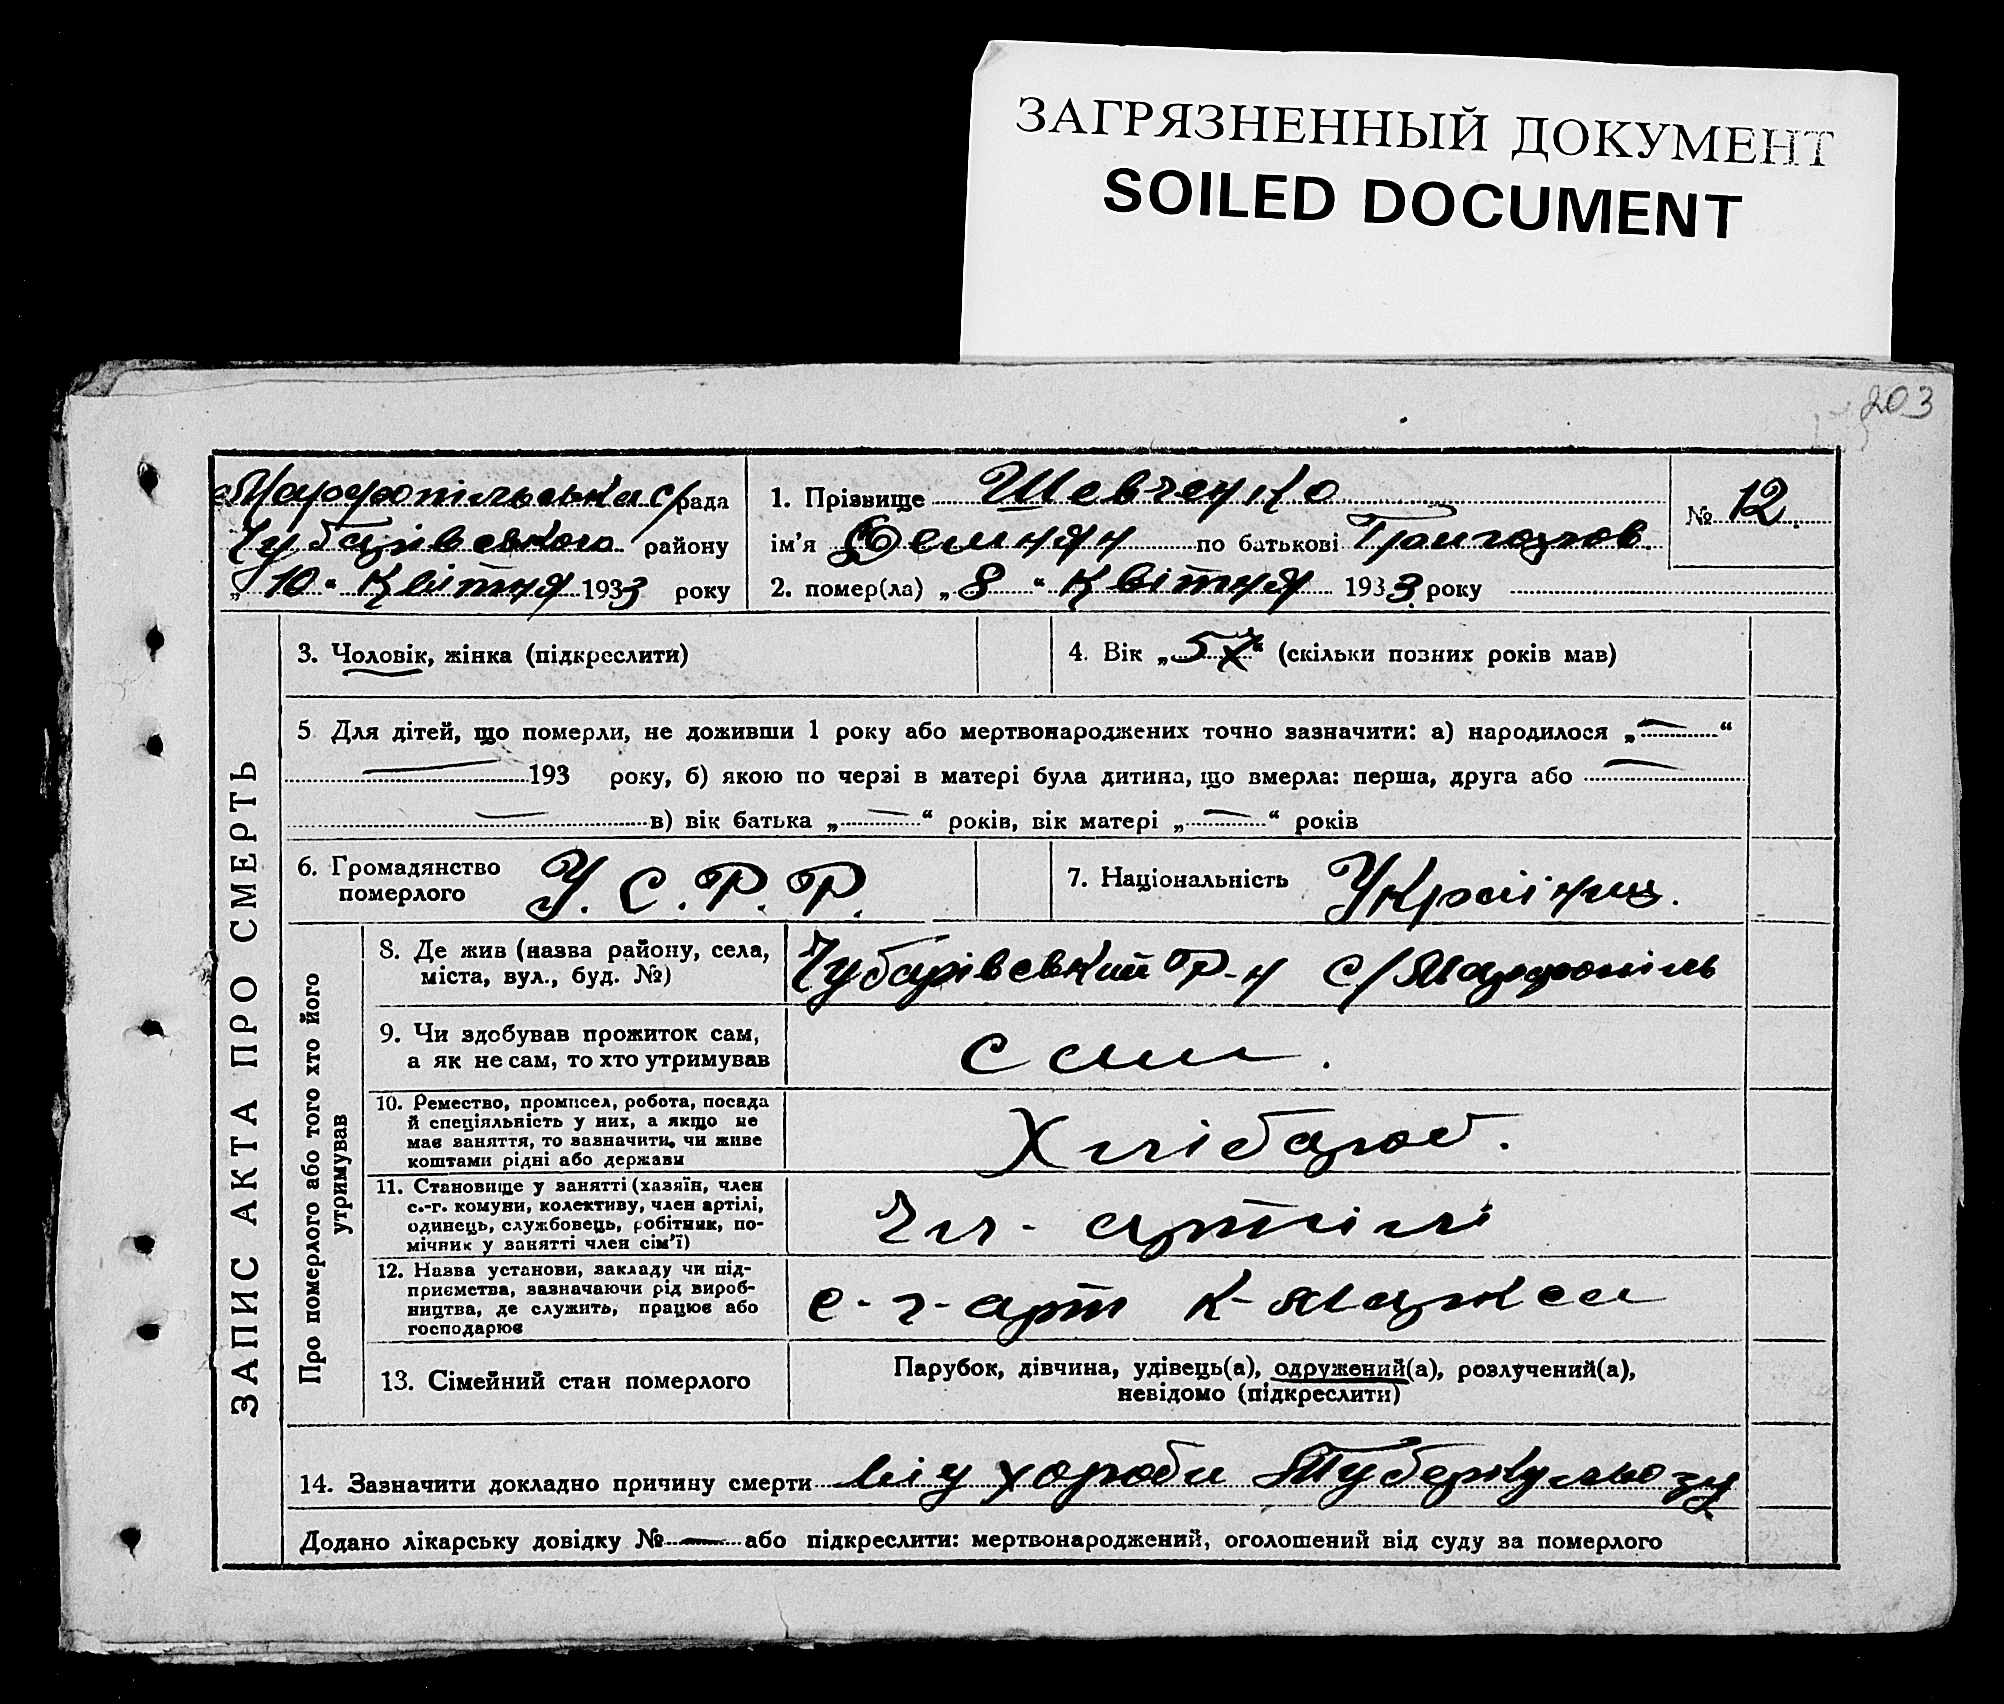 ЗАГРЯЗНЕННЫЙ ДОКУМЕНТ
SOILED DOCUMENT
203
ЗАПИС АКТА ПРО СМЕРТЬ
Марфопільська с/рада
Чубарівського району
„10“ Квітня 1933 року
1. Прізвище Шевченко
ім'я Демиян по батькові Григоров.
2. помер(ла) „8“ Квітня 1933 року
№ 12.
3. Чоловік, жінка (підкреслити)
4. Вік „57“ (скільки позних років мав)
5 Для дітей, що померли, не доживши 1 року або мертвонароджених точно зазначити: а) народилося „—“
— 193 року, б) якою по черзі в матері була дитина, що вмерла: перша, друга або —
— в) вік батька „—“ років, вік матері „—“ років
6. Громадянство
померлого У.С.Р.Р.
7. Національність Українц.
Про померлого або того хто його
утримував
8. Де жив (назва району, села,
міста, вул., буд. №)
Чубарівський Р-н с/Марфопіль
9. Чи здобував прожиток сам,
а як не сам, то хто утримував
сам.
10. Ремество, промисел, робота, посада
й спеціяльність у них, а якщо не
має заняття, то зазначити, чи живе
коштами рідні або держави
Хлібароб.
11. Становище у занятті (хазяїн, член
с.-г. комуни, колективу, член артілі,
одинець, службовець, робітник, по-
мічник у занятті член сім'ї)
Чл- артілі
12. Назва установи, закладу чи під-
приємства, зазначаючи рід вироб-
ництва, де служить, працює або
господарює
с-г-арт К-Маркса
13. Сімейний стан померлого
Парубок, дівчина, удівець(а), одружений(а), розлучений(а),
невідомо (підкреслити)
14. Зазначити докладно причину смерти від хороби Туберкульозу
Додано лікарську довідку № — або підкреслити: мертвонароджений, оголошений від суду за померлого